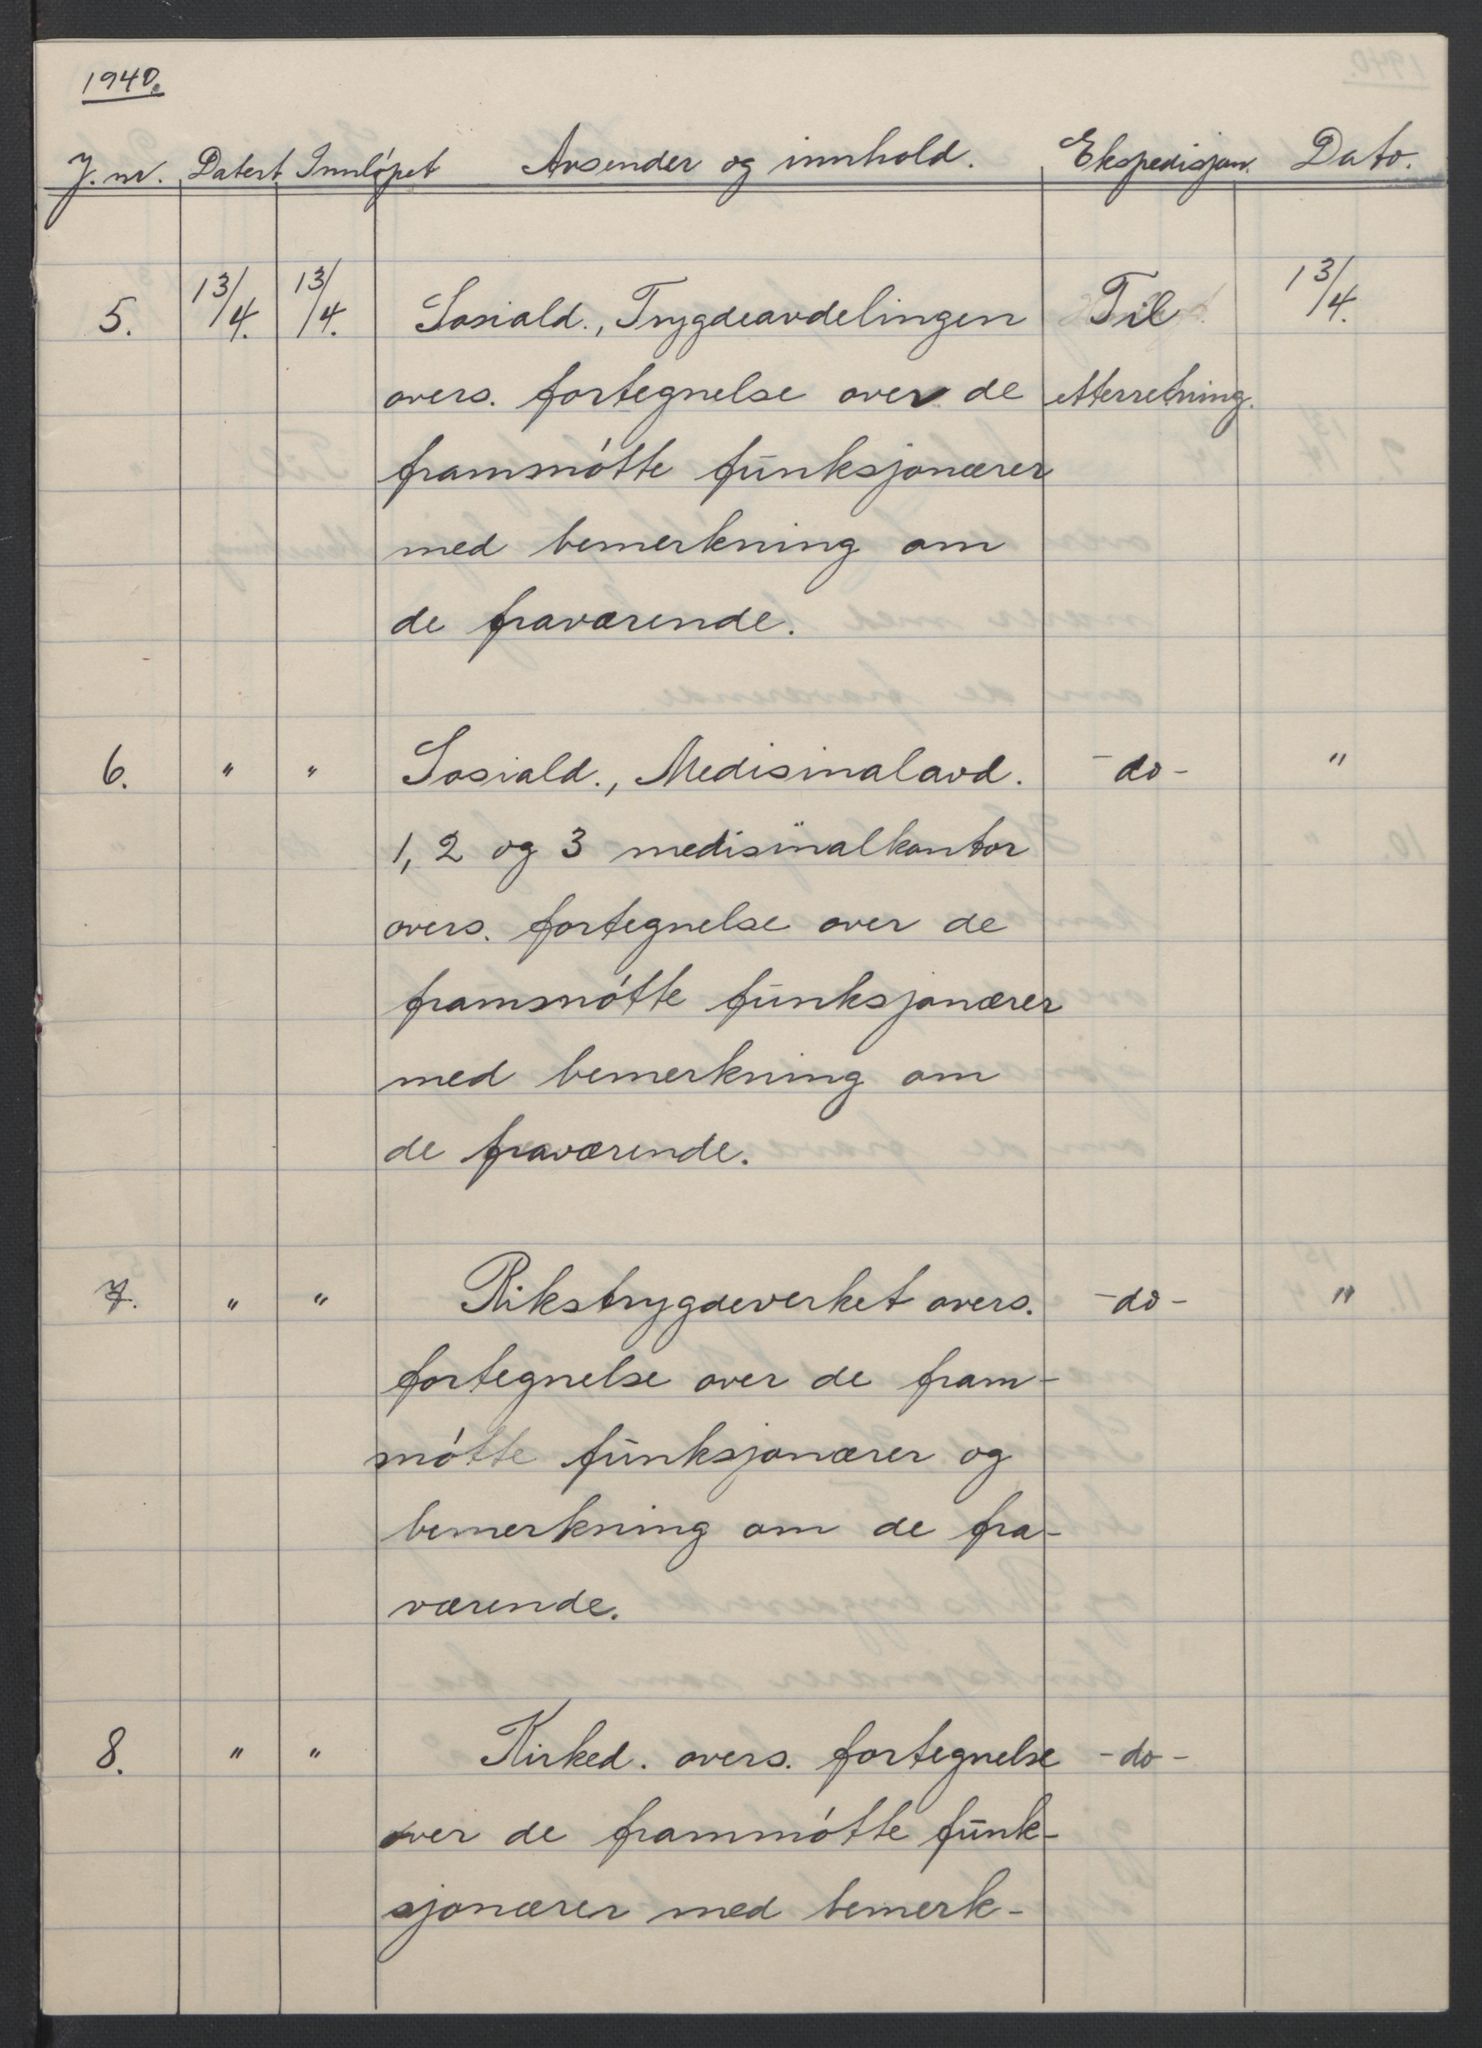 1940.
J. nr. Datert Innløpet Avsender og innhold. Ekspedisjon. Dato.
5. 13/4. 13/4. Sosiald., Trygdeavdelingen Til 13/4.
overs. fortegnelse over de etterretning.
frammøtte funksjonærer
med bemerkning om
de fraværende.
6. " " Sosiald., Medisinalavd. -do- "
1, 2 og 3 medisinalkontor
overs. fortegnelse over de
frammøtte funksjonærer
med bemerkning om
de fraværende.
7. " " Rikstrygdeverket overs. -do- "
fortegnelse over de fram-
møtte funksjonærer og
bemerkning om de fra-
værende.
8. " " Kirked. overs. fortegnelse -do-
over de frammøtte funk-
sjonærer med bemerk-